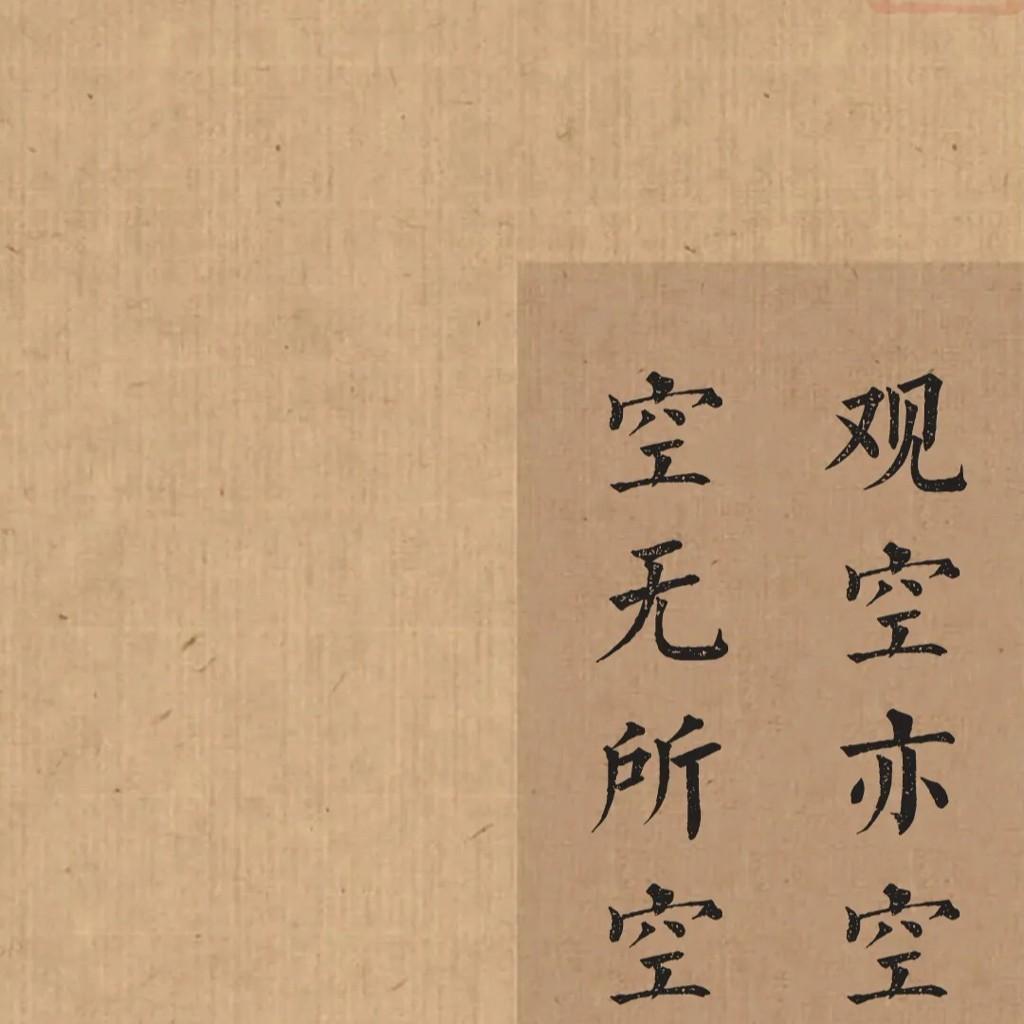 观空亦空
空无所空